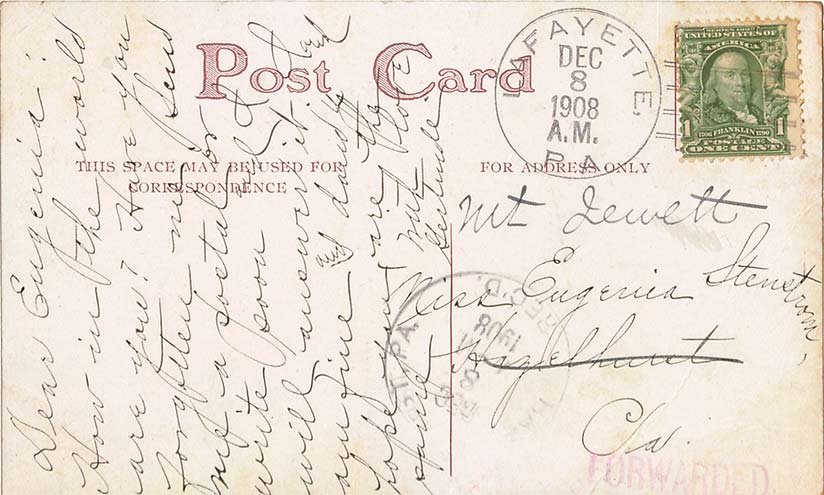 Post Card
THIS SPACE MAY BE USED FOR
CORRESPONDENCE
FOR ADDRESS ONLY
LAFAYETTE,
DEC
8
1908
A.M.
PA.
SERIES 1902
UNITED STATES OF
AMERICA
1706 FRANKLIN 1790
POSTAGE
1 ONE CENT 1
Dear Eugenia:
How in the world
are you? Have you
forgotten me? Send
me a postal or
write soon & I
will answer it. I
am fine and
hope you are the
same. With Love
Gertrude
Mt Jewett
Miss Eugenia Stenstrom,
Hazelhurst
Pa.
REC'D.
DEC
8
1908
PA.
FORWARDED.